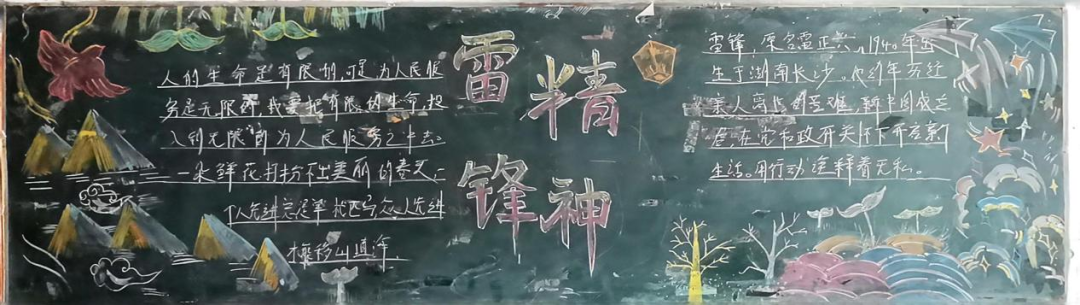 人的生命是有限的,可是为人民服
务是无限的我要把有限的生命,投
入到无限的为人民服务之中去。
一朵鲜花打扮不出美丽的春天,
一个人先进总是单 众人先进
移山填海
雷锋
精神
雷锋,原名雷正兴,1940年出
生于湖南长沙。他幼年历经
亲人离 的苦难,新中国成立
后,在党和政 关怀下开启新
生活。用行动诠释着无私。